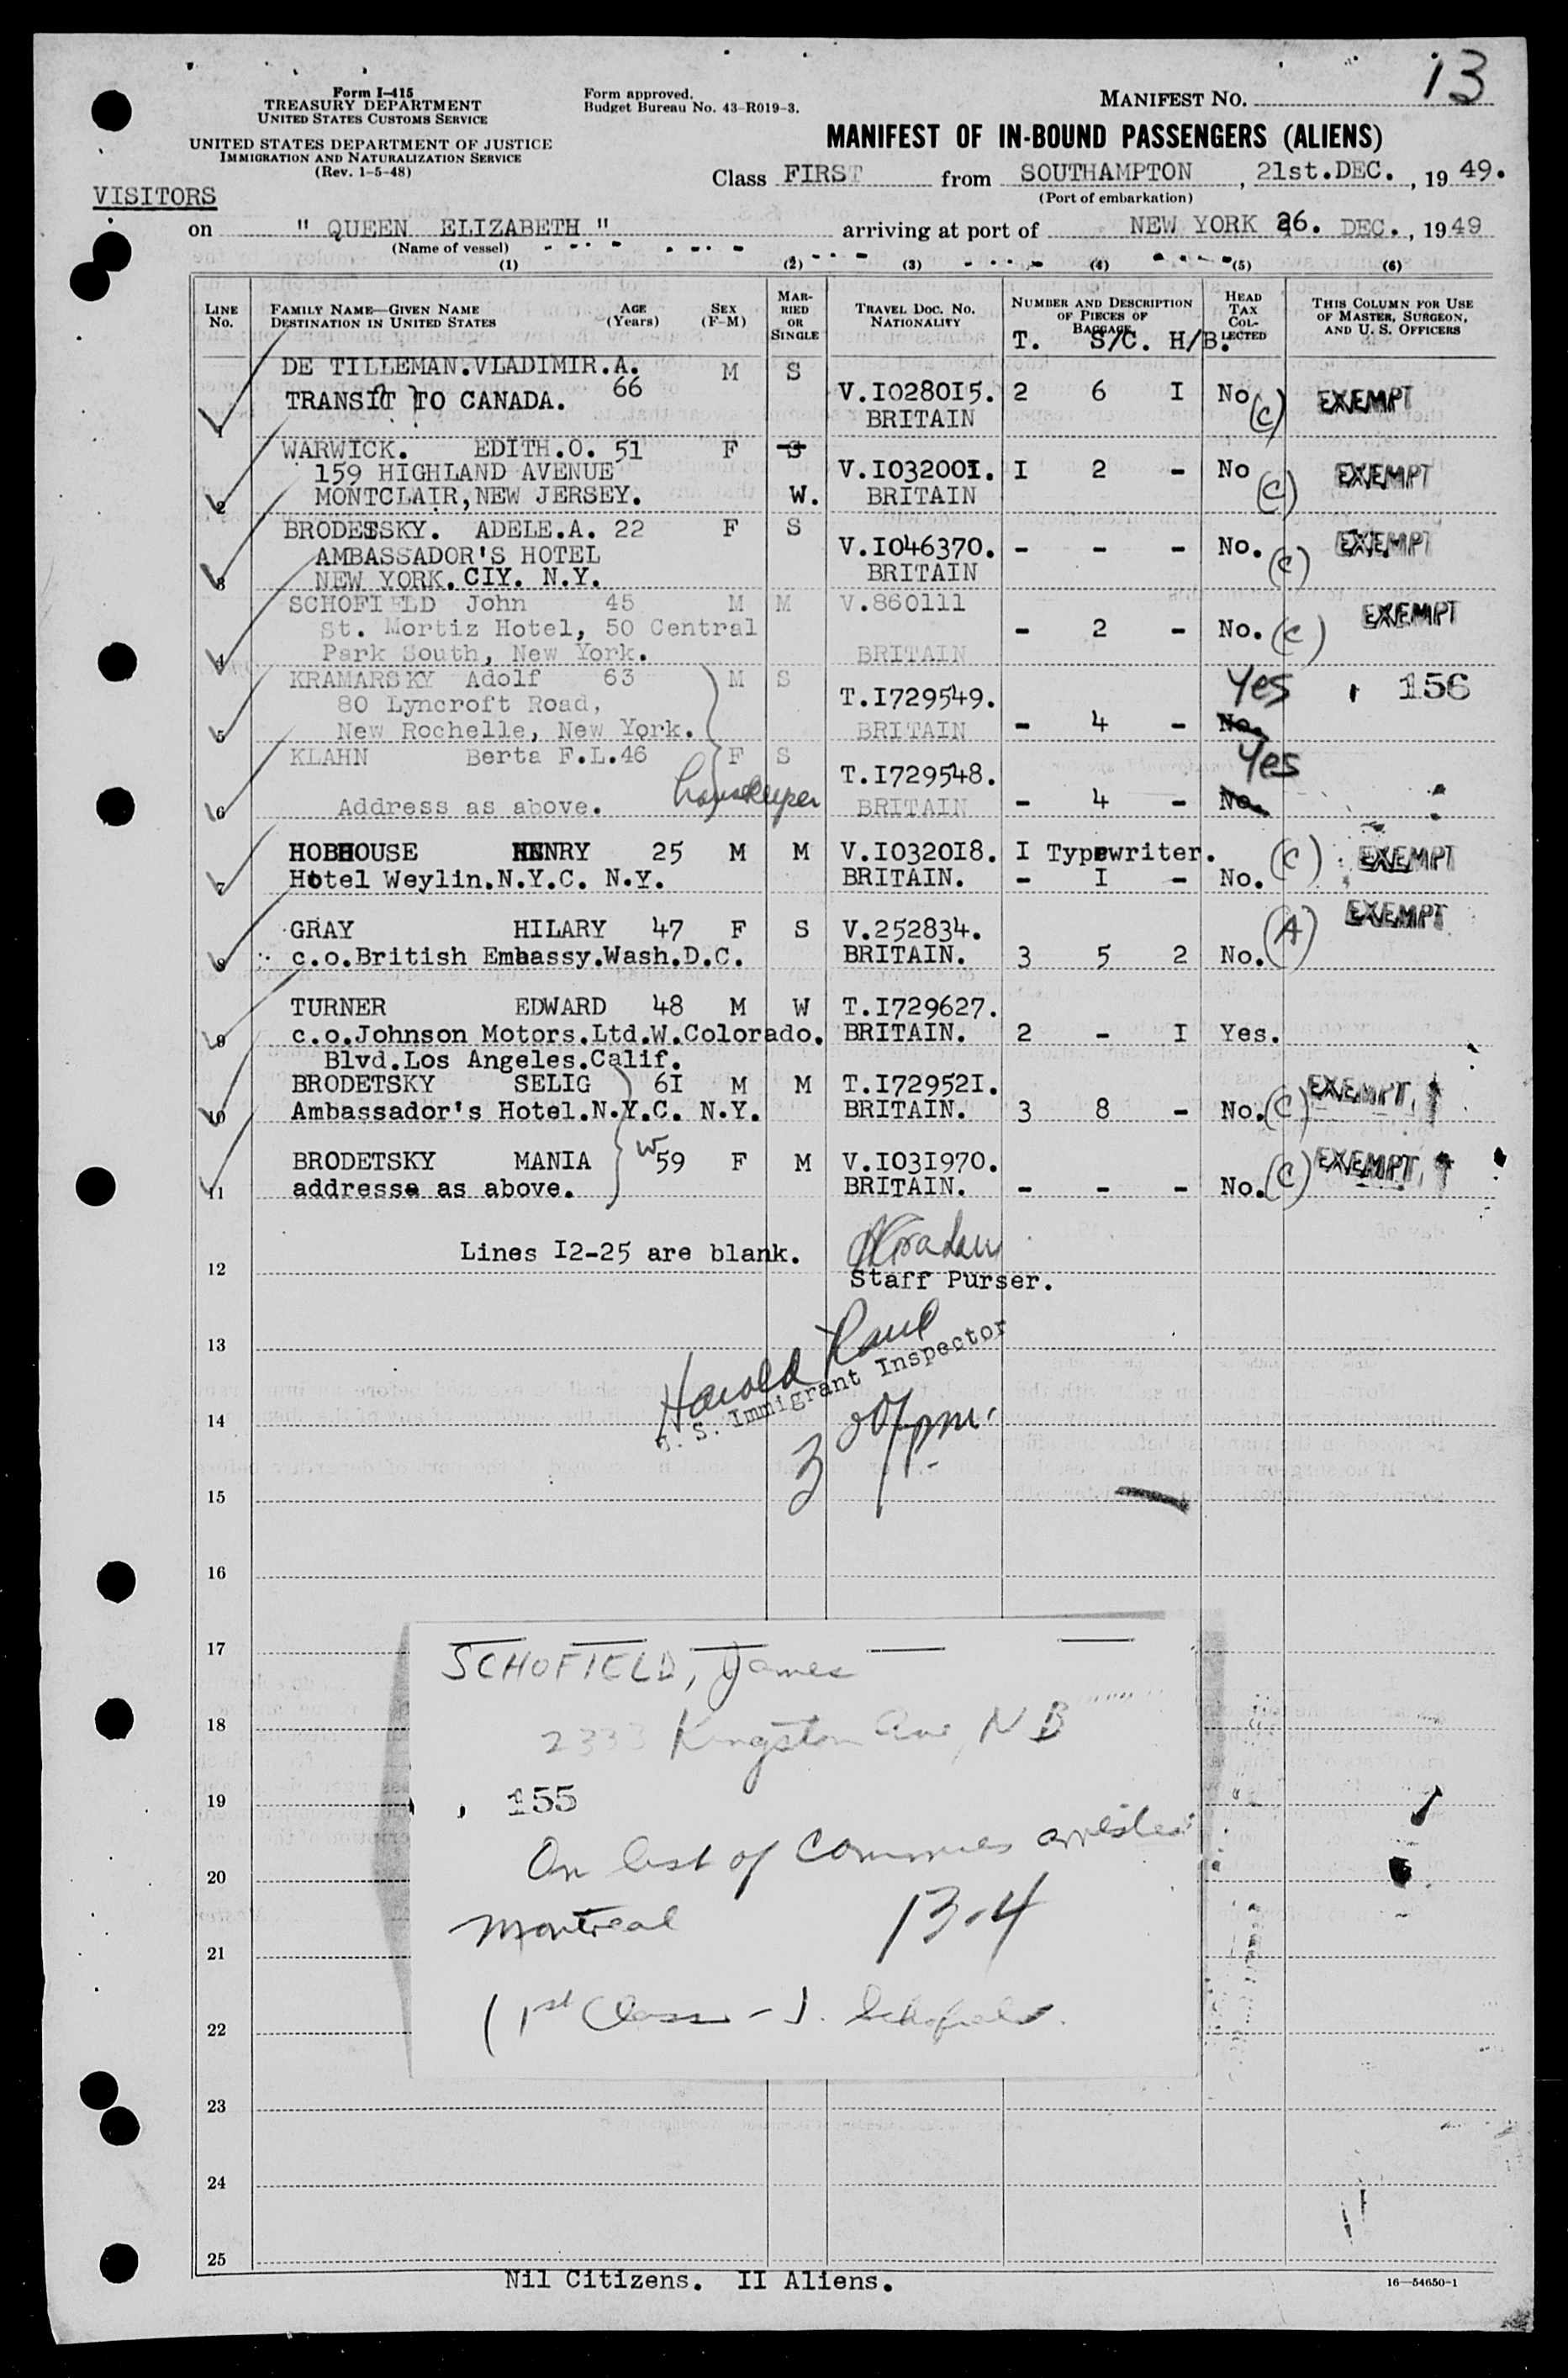 13
Form I-415
TREASURY DEPARTMENT
UNITED STATES CUSTOMS SERVICE
UNITED STATES DEPARTMENT OF JUSTICE
IMMIGRATION AND NATURALIZATION SERVICE
(Rev. 1-5-48)
Form approved.
Budget Bureau No. 43-R019-3.
MANIFEST NO.
MANIFEST OF IN-BOUND PASSENGERS (ALIENS)
Class FIRST from SOUTHAMPTON, 21st.DEC., 19 49.
(Port of embarkation)
VISITORS
on " QUEEN ELIZABETH " arriving at port of NEW YORK 26. DEC., 1949
(Name of vessel)
(1) (2) (3) (4) (5) (6)
LINE No. FAMILY NAME—GIVEN NAME DESTINATION IN UNITED STATES AGE (Years) SEX (F-M) MARRIED OR SINGLE TRAVEL DOC. NO. NATIONALITY NUMBER AND DESCRIPTION OF PIECES OF BAGGAGE HEAD TAX COLLECTED THIS COLUMN FOR USE OF MASTER, SURGEON, AND U. S. OFFICERS
T. S/C. H/B.
DE TILLEMAN.VLADIMIR.A. 66 M S
1 TRANSIT TO CANADA. V.I028015. 2 6 I No (C) EXEMPT
BRITAIN
WARWICK. EDITH.O. 51 F S
159 HIGHLAND AVENUE V.I032001. I 2 - No (C) EXEMPT
2 MONTCLAIR,NEW JERSEY. W. BRITAIN
BRODETSKY. ADELE.A. 22 F S
AMBASSADOR'S HOTEL V.I046370. - - - No. (C) EXEMPT
3 NEW YORK.CIY. N.Y. BRITAIN
SCHOFIELD John 45 M M V.860111
St. Mortiz Hotel, 50 Central - 2 - No. (C) EXEMPT
4 Park South, New York. BRITAIN
KRAMARSKY Adolf 63 M S Yes 156
80 Lyncroft Road, T.I729549.
5 New Rochelle, New York. BRITAIN - 4 - No.
KLAHN Berta F.L.46 F S Yes
housekeeper T.I729548.
6 Address as above. BRITAIN - 4 - No.
HOBHOUSE HENRY 25 M M V.I032018. I Typewriter. (C) EXEMPT
7 Hotel Weylin.N.Y.C. N.Y. BRITAIN. - I - No.
GRAY HILARY 47 F S V.252834. (A) EXEMPT
8 c.o.British Embassy.Wash.D.C. BRITAIN. 3 5 2 No.
TURNER EDWARD 48 M W T.I729627.
9 c.o.Johnson Motors.Ltd.W.Colorado. BRITAIN. 2 - I Yes.
Blvd.Los Angeles.Calif.
BRODETSKY SELIG 6I M M T.I72952I.
10 Ambassador's Hotel.N.Y.C. N.Y. BRITAIN. 3 8 - No. (C) EXEMPT.
BRODETSKY MANIA W 59 F M V.I03I970.
11 addresse as above. BRITAIN. - - - No. (C) EXEMPT.
Lines I2-25 are blank.
12
Staff Purser.
13
Harold
U. S. Immigrant Inspector
14
3 00/pm.
15
16
17
SCHOFIELD, James
18
2333 Kingston Ave, N B
19
155
On list of commies arrested
20
Montreal 13-4
21
(1st Class - J. Schofield
22
23
24
25
Nil Citizens. II Aliens.
16—54650-1